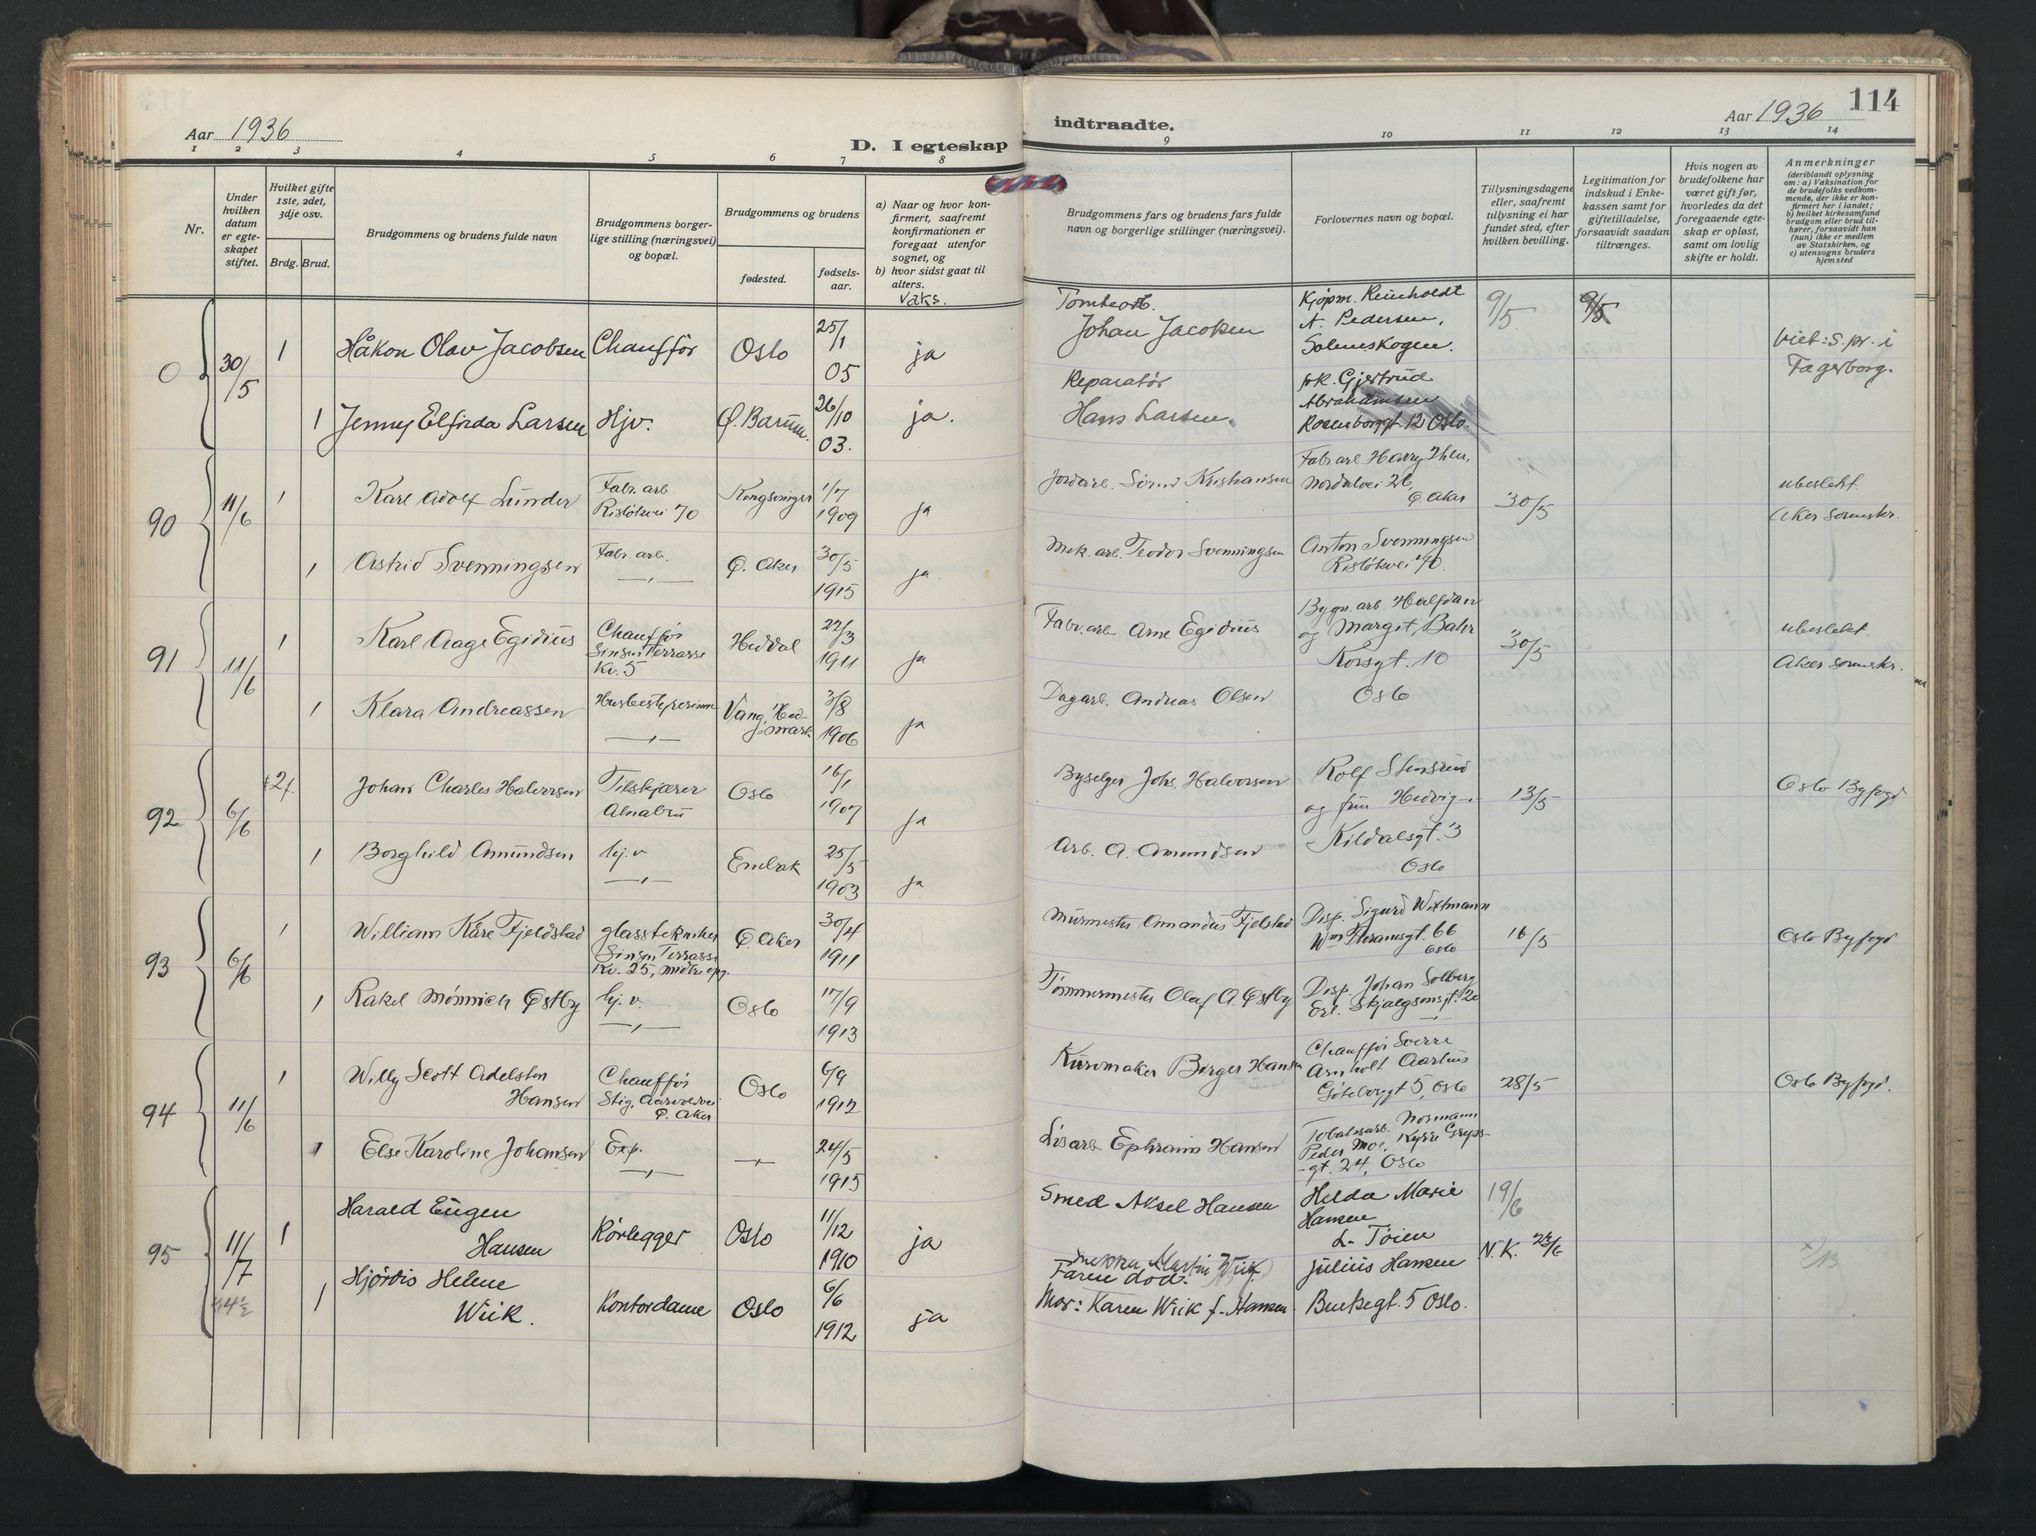 Aar 1936
D. I egteskap
indtraadte.
Aar 1936
114
1 2 3 4 5 6 7 8 9 10 11 12 13 14
Nr.
Under hvilken datum er egteskapet stiftet.
Hvilket gifte 1ste, 2det, 3dje osv.
Brdg. Brud.
Brudgommens og brudens fulde navn
Brudgommens borgerlige stilling (næringsvei) og bopæl.
Brudgommens og brudens
fødested.
fødselsaar.
a) Naar og hvor konfirmert, saafremt konfirmationen er foregaat utenfor sognet, og
b) hvor sidst gaat til alters.
Vaks.
Brudgommens fars og brudens fars fulde navn og borgerlige stillinger (næringsvei).
Forlovernes navn og bopæl.
Tillysningsdagene eller, saafremt tillysning ei har fundet sted, efter hvilken bevilling.
Legitimation for indskud i Enkekassen samt for giftetilladelse, forsaavidt saadan tiltrænges.
Hvis nogen av brudefolkene har været gift før, hvorledes da det foregaaende egteskap er opløst, samt om lovlig skifte er holdt.
Anmerkninger
(deriblandt oplysning om: a) Vaksination for de brudefolks vedkommende, der ikke er konfirmert her i landet;
b) hvilket kirkesamfund brudgom eller brud tilhører, forsaavidt han (hun) ikke er medlem av Statskirken, og
c) utensogns bruders hjemsted
0
30/5
1
Håkon Olav Jacobsen
Chauffør
Oslo
25/1
05
ja
Johan Jacobsen
Kjøpm. Reinholdt
A. Pedersen,
Solemskogen.
9/5
9/5
viet: S. pr. i
Fagerborg.
1
Jenny Elfrida Larsen
Hjv.
Ø. Bærum.
26/10
03.
ja.
Reparatør
Hans Larsen
frk. Gjertrud
Abrahamsen
Rosenborggt. 12 Oslo.
90
11/6
1
Karl Adolf Lunder
Fabr. arb.
Risløkvei 70
Kongsvinger
1/7
1909
ja
Jordarb. Sørn Kristiansen
Fabr. arb. Harry Ihler,
Nordalvei 26,
Ø. Aker
30/5
ubeslekt.
Aker sorenskr.
1
Astrid Svenningsen
Fabr. arb.
—„—
Ø. Aker
30/5
1915
ja.
Mek. arb. Teodor Svenningsen
Anton Svenningsen
Risløkvei 70.
91
11/6
1
Karl Aage Egidius
Chauffør
Sinsen Terrasse
Kv. 5
Heddal
22/3
1911
ja
Fabr. arb. Arne Egidius
Bygn. arb. Halfdan
og Margit Bahr
Korsgt. 10
Oslo
30/5
ubeslekt.
Aker sorenskr.
1
Klara Andreassen
Husbestyrerinne
—„—
Vang, Hedmark
3/8
1906
ja
Dagarb. Andreas Olsen
92
6/6
2f.
Johan Charles Halvorsen
Tilskjærer
Alnabru
Oslo
16/1
1907
ja
Byselger Johs. Halvorsen
Rolf Stensrud
og fru Hedvig
Kildalsgt. 3
Oslo
13/5
Oslo Byfogd
1
Borghild Amundsen
hj. v
—„—
Enebak
25/5
1903
ja
Arb. A. Amundsen
93
6/6
1
William Kåre Fjeldstad
glasstekniker
Sinsen Terrasse
Kv. 25, midtre opg.
Ø. Aker
30/4
1911
Murmester Amandus Fjelstad
Disp. Sigurd Wittmann
Wm Thranesgt. 66
Oslo
16/5
Oslo Byfogd
1
Rakel Mønnich Østby
hj. v.
—„—
Oslo
17/9
1913
Tømmermester Olaf A. Østby
Disp. Johan Solberg
Erl. Skjalgsonsgt. 20
94
11/6
1
Willy Scott Adelsten
Hansen
Chauffør
Stig, Aarvoldvei
Ø. Aker
Oslo
6/9
1912
Kurvmaker Borger Hansen
Chauffør Sverre
Arnholt Aarhus
Göteborggt 5, Oslo
28/5
Oslo Byfogd.
1
Else Karoline Johansen
Exp.
—„—
—„—
24/5
1915
Løsarb Ephraim Hansen
Tobaksarb. Normann
Peder Moe, Kyrre Greps-
gt. 24, Oslo
95
11/7
44½
1
Harald Eugen
Hansen
Rørlegger
Oslo
11/12
1910
ja
Smed Aksel Hansen
Helda Marie
Hansen
L. Tøien
19/6
N. K. 23/6
1
Hjørdis Helene
Wiik.
Kontordame
Oslo
6/6
1912
ja
Martin Wiik
Faren død.
Mor: Karen Wiik f. Hansen.
Julius Hansen
Binkegt. 5 Oslo.